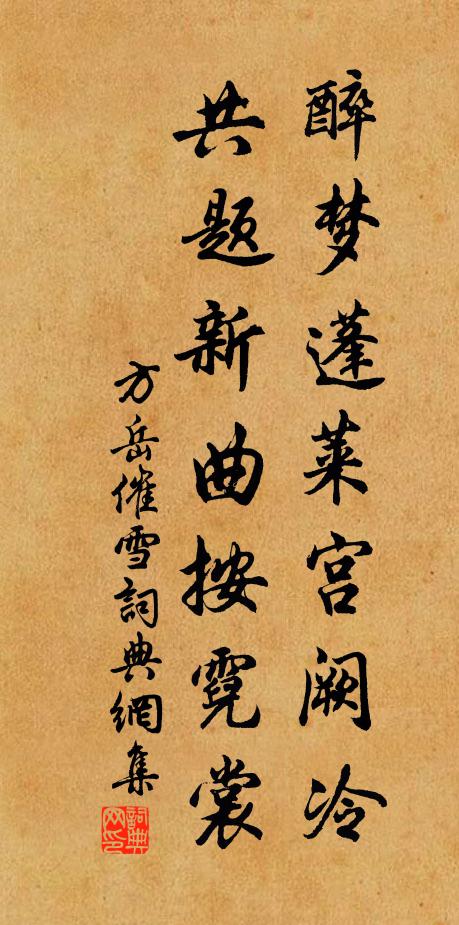 醉梦蓬莱宫阙冷
共题新曲按霓裳
方岳催雪詞典網集
詞典网印